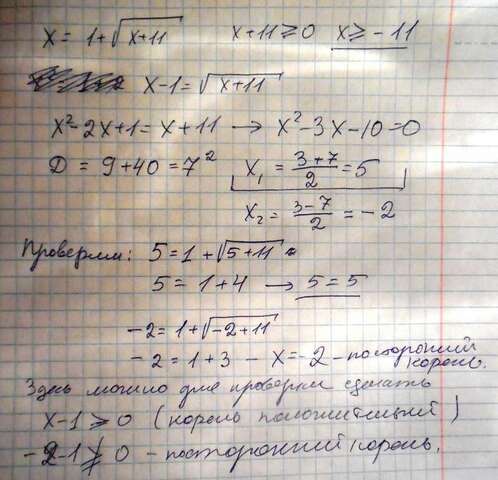 x = 1+√(x+11)   x+11 ≥ 0   x ≥ -11
x-1 = √(x+11)
x²-2x+1 = x+11 → x²-3x-10=0
D = 9+40 = 7²   x₁ = (3+7)/2 = 5
x₂ = (3-7)/2 = -2
Проверим: 5 = 1+√(5+11)
5 = 1+4 → 5 = 5
-2 = 1+√(-2+11)
-2 = 1+3 - x=-2 - посторонний корень.
Здесь можно для проверки сделать
x-1 ≥ 0 (корень положительный)
-2-1 ≱ 0 - посторонний корень.